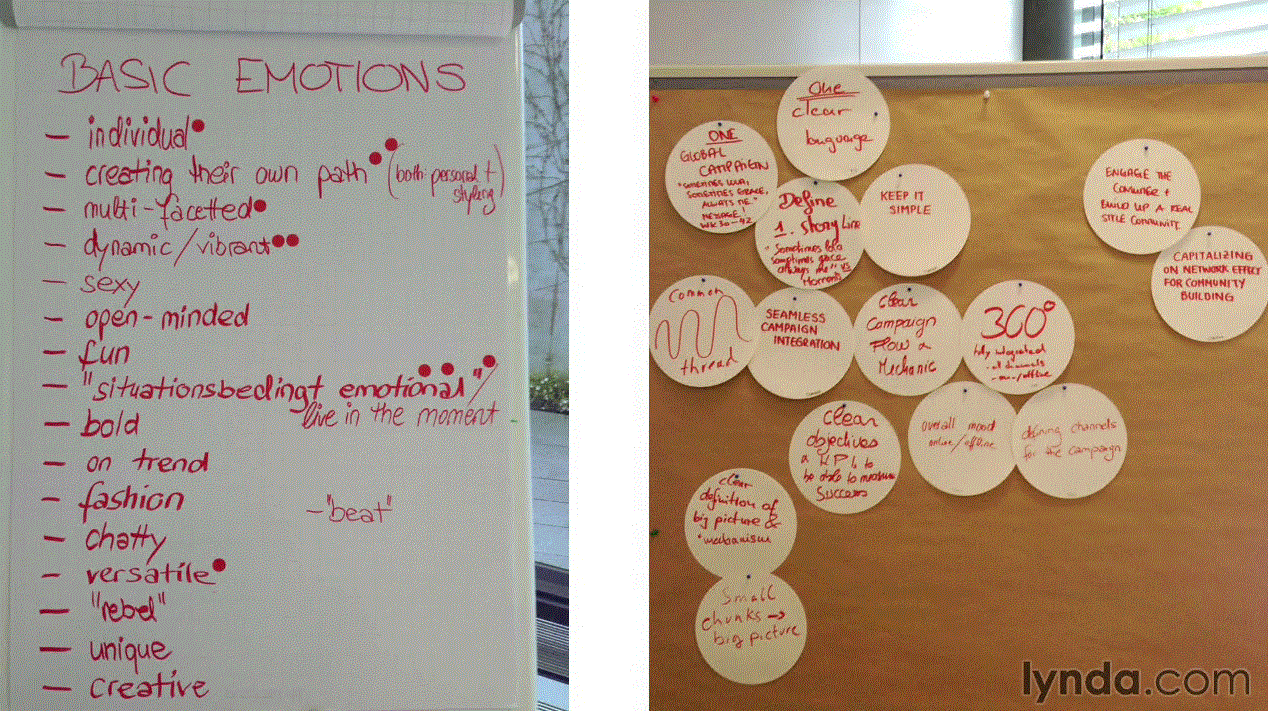 BASIC EMOTIONS
- individual
- creating their own path (both personal +
styling)
- multi-facetted
- dynamic/vibrant
- sexy
- open-minded
- fun
- "situationsbedingt emotional"/
live in the moment
- bold
- on trend
- fashion
- "beat"
- chatty
- versatile
- "rebel"
- unique
- creative
One
clear
language
ONE
GLOBAL
CAMPAIGN
"SOMETIMES
SOMETIMES
ALWAYS ME."
MESSAGE
WK 30-42
Define
1. Story Line
"Sometimes
sometimes
always me"
KEEP IT
SIMPLE
ENGAGE THE
CONSUMER +
BUILD UP A REAL
STYLE COMMUNITY
CAPITALIZING
ON NETWORK EFFECT
FOR COMMUNITY
BUILDING
Common
thread
SEAMLESS
CAMPAIGN
INTEGRATION
Clear
Campaign
Flow &
Mechanic
360°
fully integrated
- all channels
- on/offline
clear
objectives
& KPIs to
be able to measure
success
overall mood
online/offline
defining channels
for the campaign
clear
definition of
big picture &
mechanism
Small
chunks →
big picture
lynda.com